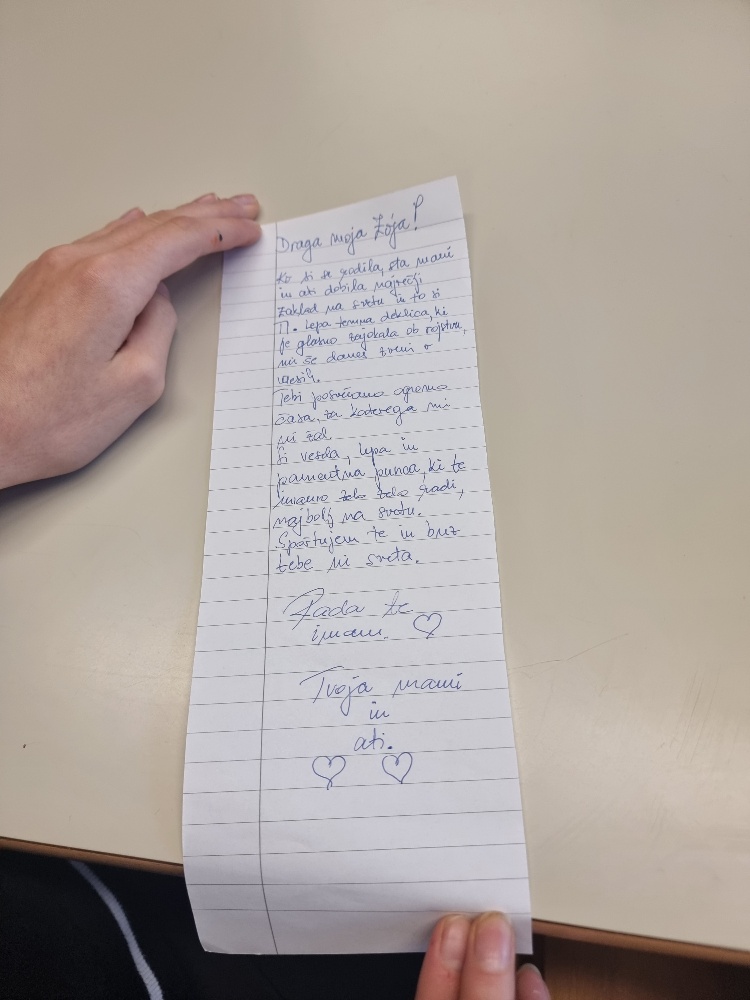 Draga moja Zoja!
Ko si se rodila, sta mami
in ati dobila največji
zaklad na svetu in to si
TI. Lepa temna deklica, ki
je glasno zajokala ob rojstvu,
mi še danes zveni v
ušesih.
Tebi posvečamo ogromno
časa, za katerega mi
ni žal.
Si vesela, lepa in
pametna punca, ki te
imamo zelo zelo radi,
najbolj na svetu.
Spoštujem te in brez
tebe ni sveta.
Rada te
imam. ♡
Tvoja mami
in
ati.
♡ ♡